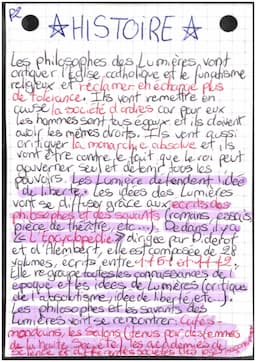 P2
HISTOIRE
Les philosophes des Lumières, vont
critiquer l'Eglise catholique et le fanatisme
religieux et réclamer en échange plus
de tolérance. Ils vont remettre en
cause la société d'ordres car pour eux
les hommes sont tous égaux et ils doivent
avoir les mêmes droits. Ils vont aussi
critiquer la monarchie absolue et ils
vont être contre le fait que le roi peut
gouverner seul et détenir tous les
pouvoirs. Les Lumière défendent l'idée
de liberté. Les idées des Lumières
vont se diffuser grâce aux écrits des
philosophes et des savants (romans, essais,
pièce de théatre, etc...). De dans, il y a
"L'Encyclopédie" dirigée par D. Diderot
et d'Alembert, elle est composée de 28
volumes, écrits entre 1751 et 1772.
Elle regroupe toutes les connaissances de l'
époque et les idées de Lumières (critique
de l'absolutisme, idée de liberté, etc...).
Les philosophes et les savants des
Lumières vont se rencontrer cafés
mondains, les salons (tenus par des femmes
de la haute Société), les académies de
sciences et différentes sociétés des pays